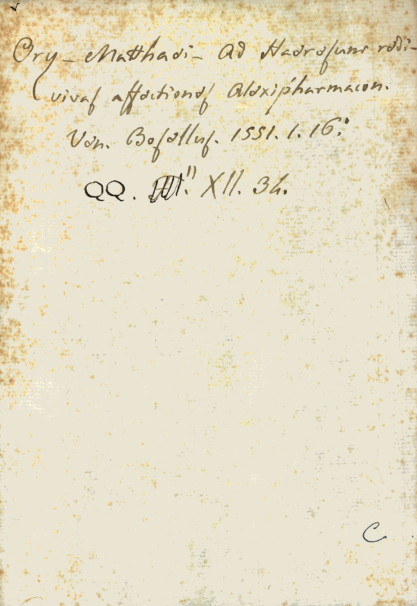 Ory - Matthaei - Ad Haeresum redi-
vivas affectiones Alexipharmacon.
Ven. Bosellus. 1551. 1. 16°
QQ. XII. 34.
C